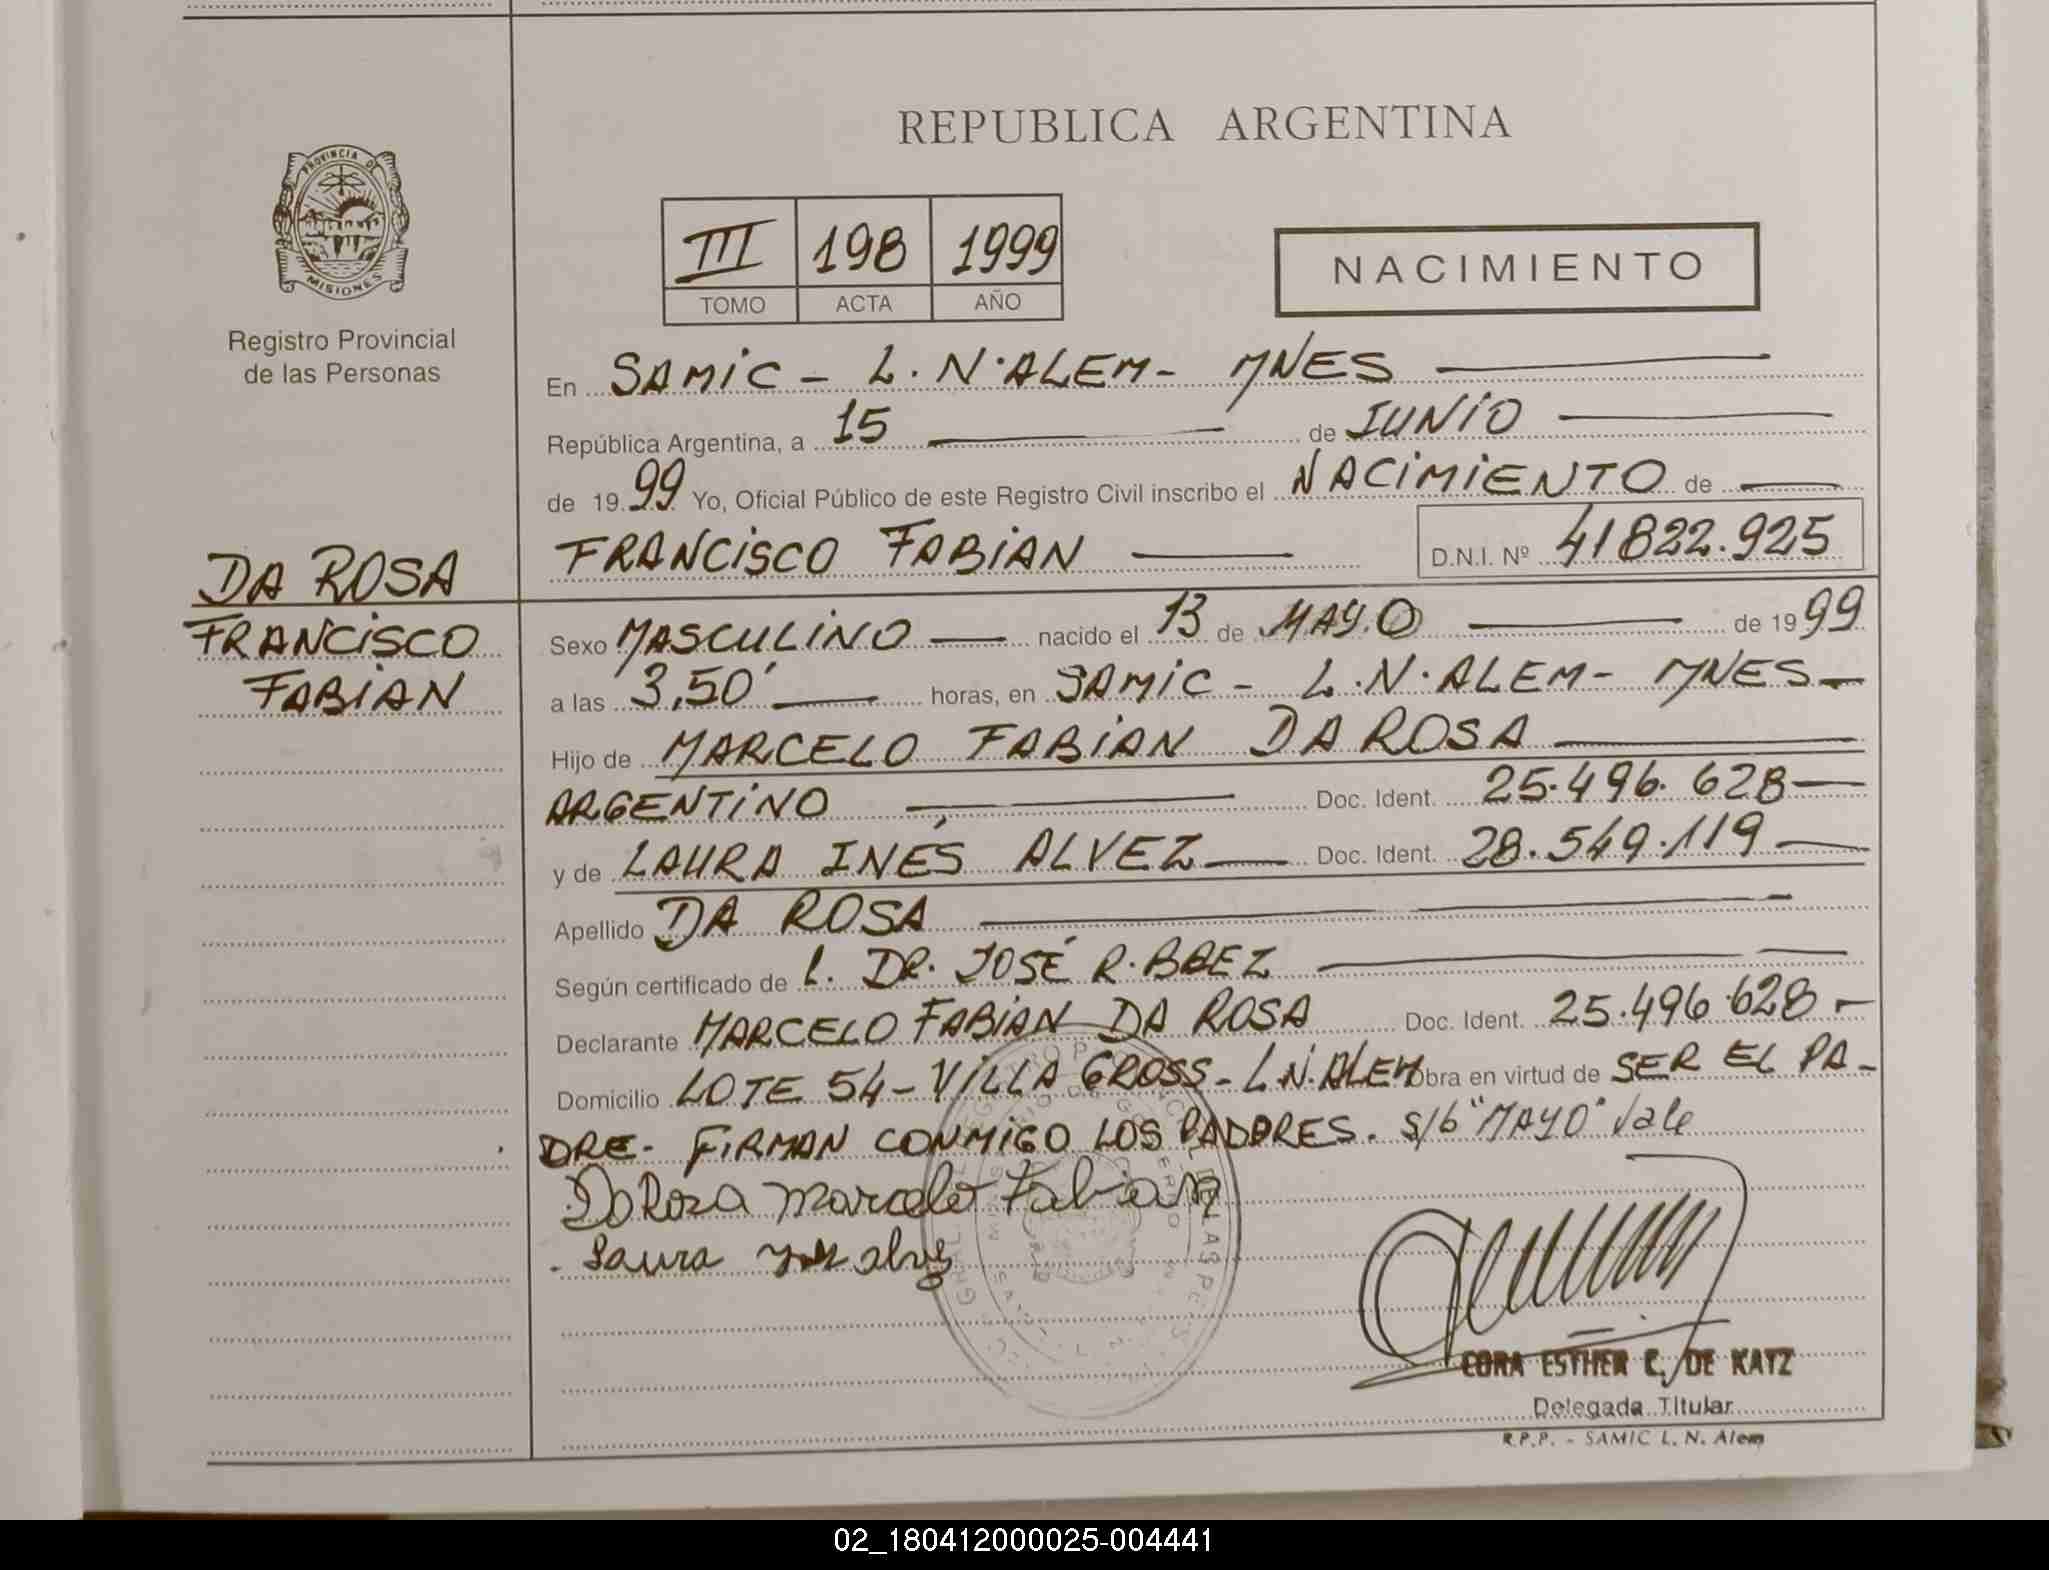 REPUBLICA ARGENTINA
PROVINCIA DE
MISIONES
Registro Provincial
de las Personas
III 198 1999
TOMO ACTA AÑO
NACIMIENTO
En SAMIC - L.N.ALEM - MNES
República Argentina, a 15 de JUNIO
de 1999 Yo, Oficial Público de este Registro Civil inscribo el NACIMIENTO de
FRANCISCO FABIAN D.N.I. Nº 41822.925
DA ROSA
FRANCISCO
FABIAN
Sexo MASCULINO nacido el 13 de MAYO de 1999
a las 3,50' horas, en SAMIC - L.N.ALEM - MNES
Hijo de MARCELO FABIAN DA ROSA
ARGENTINO Doc. Ident. 25.496.628
y de LAURA INÉS ALVEZ Doc. Ident. 28.549.119
Apellido DA ROSA
Según certificado de L. DR. JOSÉ R. BAEZ
Declarante MARCELO FABIAN DA ROSA Doc. Ident. 25.496.628
Domicilio LOTE 54 - VILLA GROSS - L.N.ALEM Obra en virtud de SER EL PA-
DRE - FIRMAN CONMIGO LOS PADRES. S/b "MAYO" Vale
Da Rosa Marcelo Fabian
Laura
CORA ESTHER C. DE KATZ
Delegada Titular
R.P.P. - SAMIC L. N. Alem
02_180412000025-004441